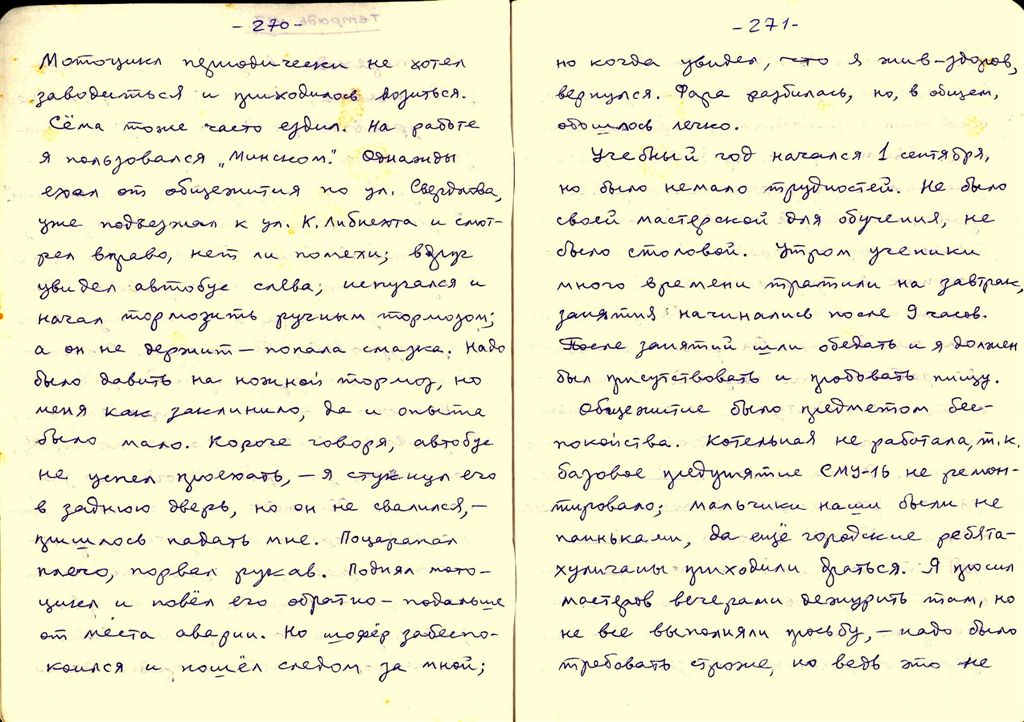 - 270 -
Мотоцикл периодически не хотел
заводиться и приходилось возиться.
Сёма тоже часто ездил. На работе
я пользовался „Минском". Однажды
ехал от общежития по ул. Свердлова,
уже подъезжал к ул. К. Либкнехта и смот-
рел вправо, нет ли помехи; вдруг
увидел автобус слева; испугался и
начал тормозить ручным тормозом;
а он не держит — попала смазка. Надо
было давить на ножной тормоз, но
меня как заклинило, да и опыта
было мало. Короче говоря, автобус
не успел проехать, — я стукнул его
в заднюю дверь, но он не свалился, —
пришлось падать мне. Поцарапал
плечо, порвал рукав. Поднял мото-
цикл и повёл его обратно — подальше
от места аварии. Но шофёр забеспо-
коился и пошёл следом за мной;
- 271 -
но когда увидел, что я жив-здоров,
вернулся. Фара разбилась, но, в общем,
обошлось легко.
Учебный год начался 1 сентября,
но было немало трудностей. Не было
своей мастерской для обучения, не
было столовой. Утром ученики
много времени тратили на завтрак,
занятия начинались после 9 часов.
После занятий шли обедать и я должен
был присутствовать и пробовать пищу.
Общежитие было предметом бес-
покойства. Котельная не работала, т.к.
базовое предприятие СМУ-16 не ремон-
тировало; мальчики наши были не
паиньками, да ещё городские ребята-
хулиганы приходили драться. Я просил
мастеров вечерами дежурить там, но
не все выполняли просьбу, — надо было
требовать строже, но ведь это не